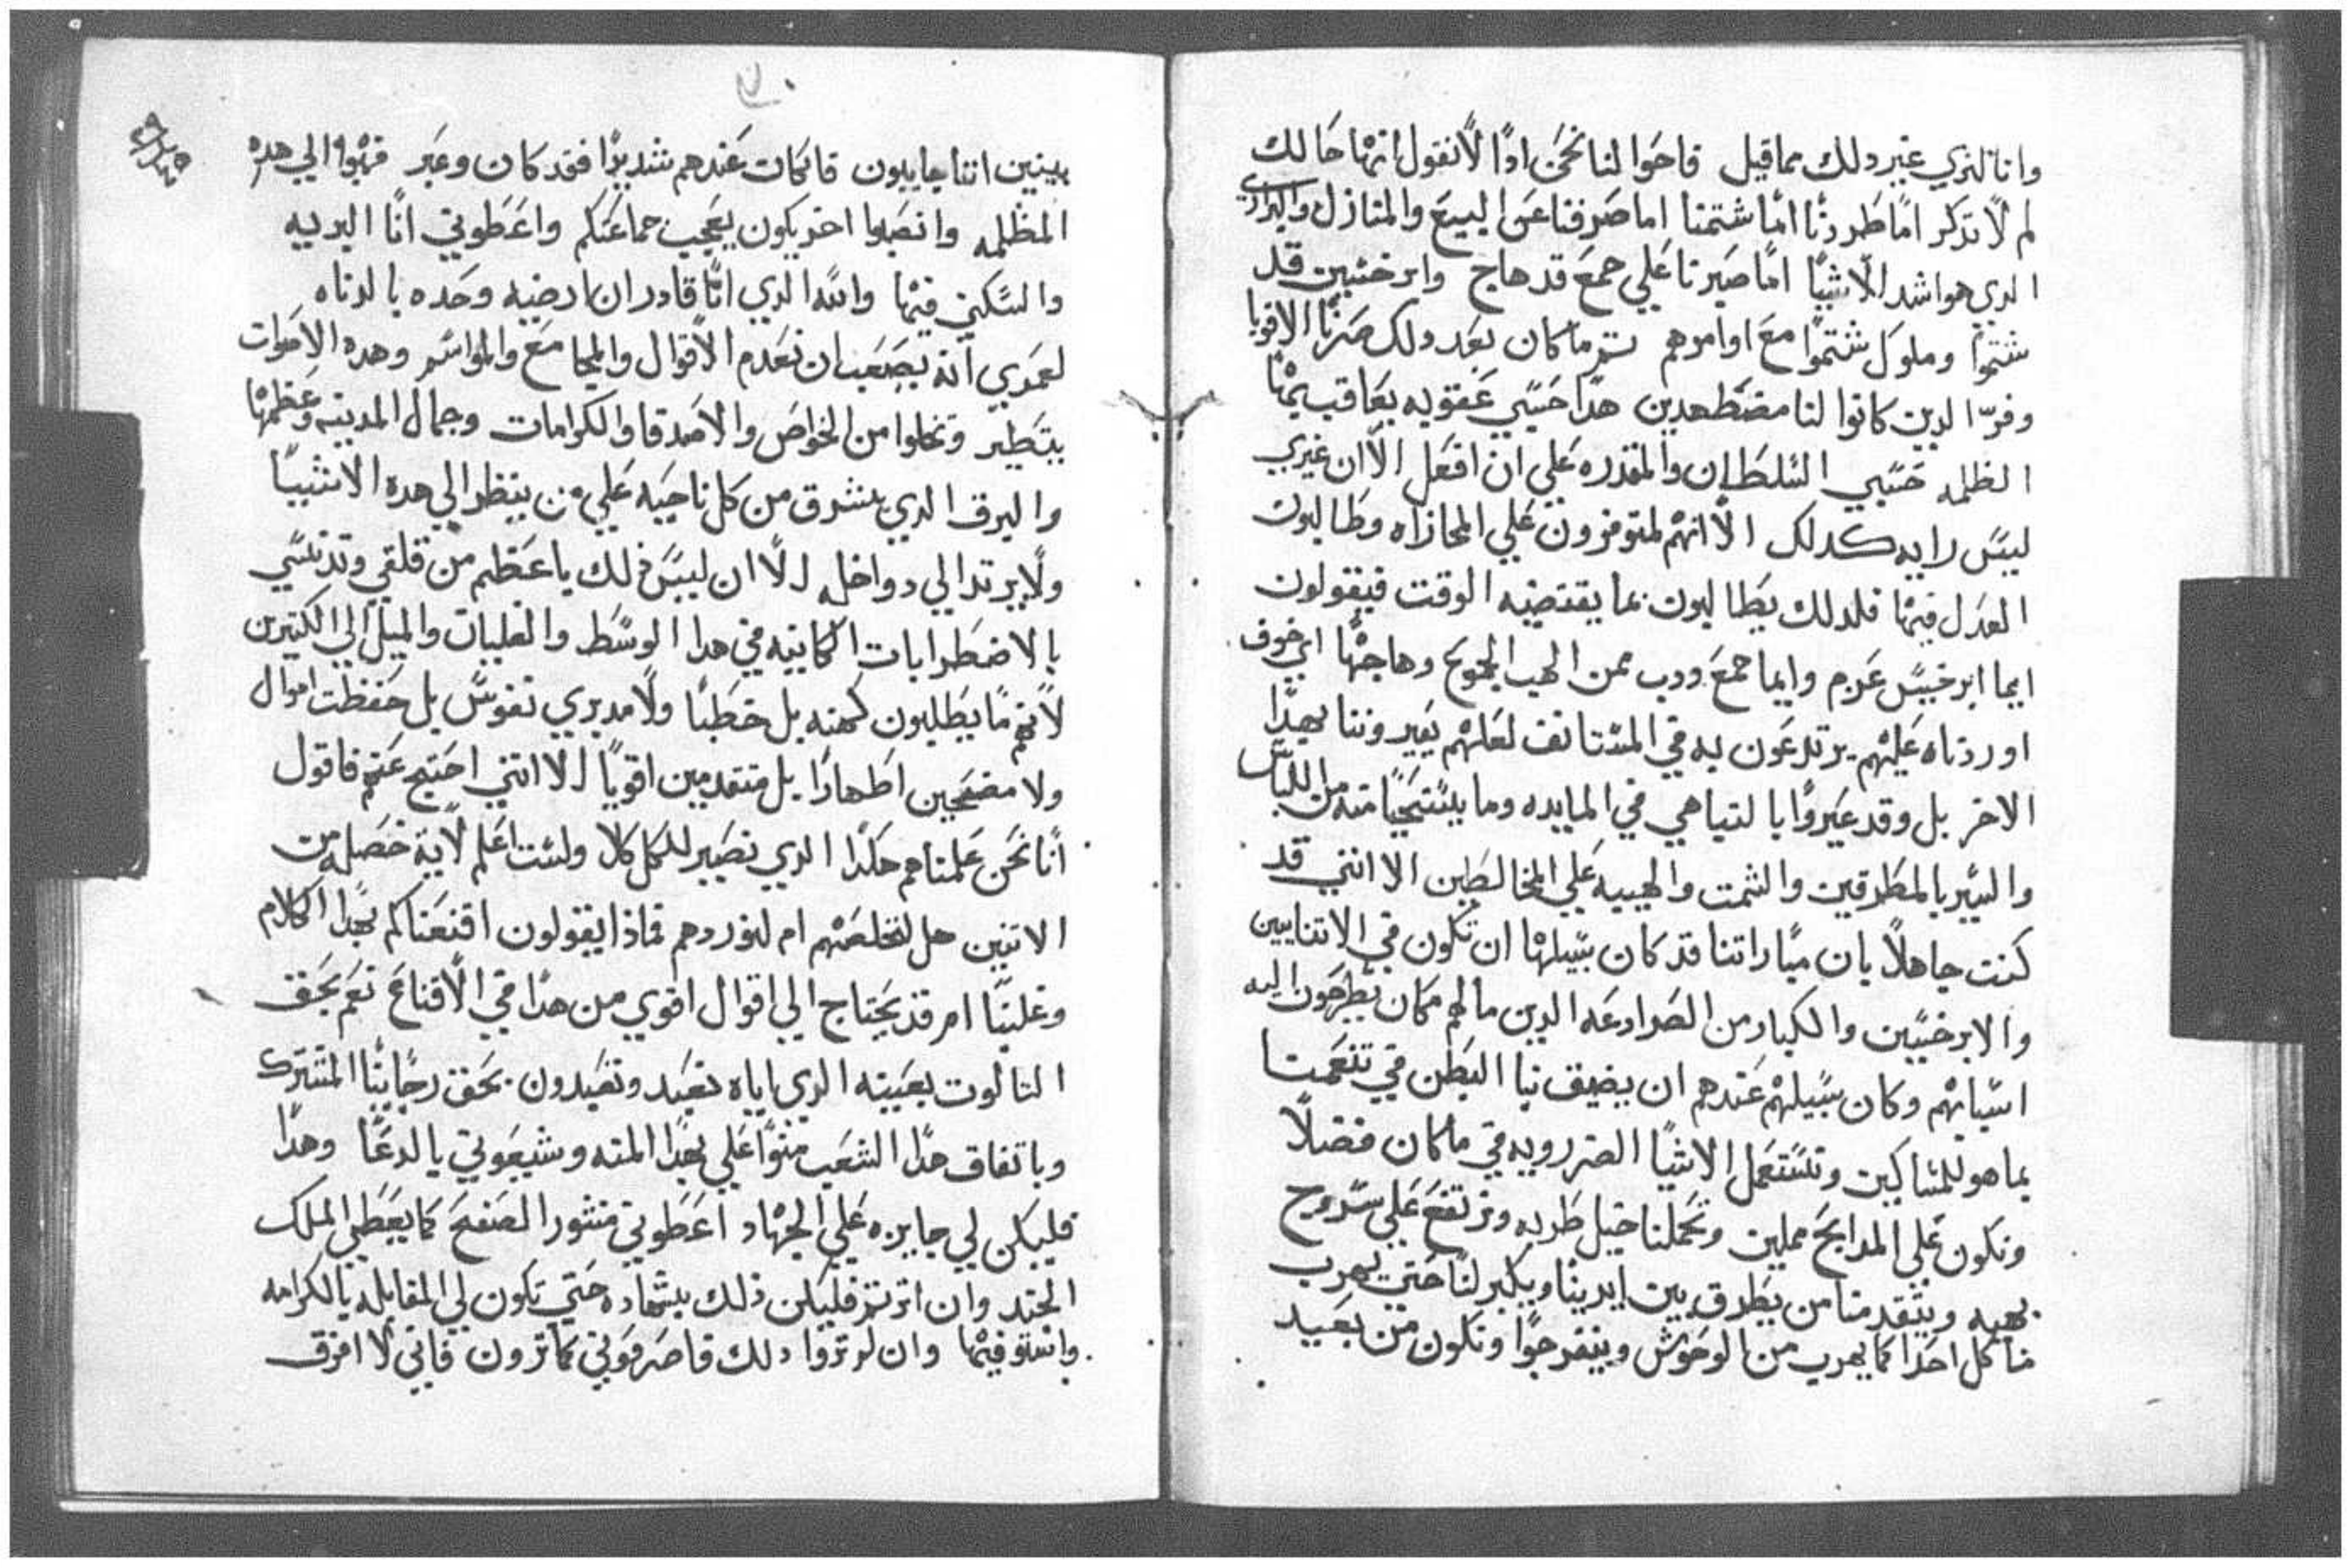 وانا لنري غير دلك مما قيل فاحوا لنا نحن ادًا لانقول انها حالك
لم لا تذكر امًا طردنًا امًا شتمنا اما صرفنا عن البيع والمنازل والبراري
الدي هو اشد الاشيا امًا صيرنا علي جمع قد هاج وابرخسين قد
شتموا وملوك شتموا مع اوامرهم تم ما كان بعد دلك صرنا الاقويا
وفرّ الدين كانوا لنا مضطهدين هدا حسبي عقوبه يعاقب بها
الظلمه حسبي السلطان والمقدره علي ان افعل الا ان غيري
ليس رايه كدلك الا انهم لمتوفرون علي المجازاه وطالبون
العدل فيها فلدلك يطالبون بما يقتضيه الوقت فيقولون
ايما ابرخيس غرم وايما جمع وادب ممن الهب الجموع وهاجها اي خوف
اوردناه عليهم يرتدعون به في المستانف لعلهم يعيروننا بهدا
الاخر بل وقد عيروا بالتي هي في المايده وما يستحيا منه من اللباس
والسير بالمطرقين والشمت والهيبه علي المخالطين الا انني قد
كنت جاهلًا بان مباراتنا قد كان سبيلها ان تكون في الاتنايين
والابرخسين والكبار من الصرادعه الدين ما لهم مكان يطرحون اليه
اسبابهم وكان سبيلهم عندهم ان يضيق بنا البطن في تنعمنا
بما هو للمساكين وتستعمل الاشيا الضروريه في ما كان فضلًا
ونكون علي المدابح مملين وتحملنا خيل طربه ونرتفع علي سروج
بهيه ويتقدمنا من يطرق بين ايدينا ويكبر لنا حتي يهرب
منا كل احد كما يهرب من الوحوش وينفرجوا ونكون من بعيد
بينين اننا جاييون فان كات عندهم شديدًا فقد كان وعبر فهبوا لي هده
المظلمه وانصبوا اخر يكون يعجب جماعتكم واعطوني انا البريه
والسكني فيها والله الدي انا قادر ان ارضيه وحده بالدناه
لعمري انه يصعب ان نعدم الاقوال والمجامع والمواسم وهده الاصوات
بتطير وتخلوا من الخواص والاصدقا والكرامات وجمال المدينه وعظمها
والبرق الدي يشرق من كل ناحيه علي من ينظر الي هده الاشيا
ولا يرتد الي دواخله الا ان ليس ذلك باعظم من قلقي وتدنسي
بالاضطرابات الكاينه في هدا الوسط والغليان والميل الي الكتيرين
لانهم ما يطلبون كهنه بل خطبًا ولا مدبري نفوس بل حفظت اموال
ولا مضحين اطهارًا بل متقدمين اقويًا الا انني احتج عنهم فاقول
انا نحن علمناهم هكدا الدي نصير للكل كلا ولست اعلم لاية خصله من
الاتنين هل لنخلصهم ام لنوردهم فماذا يقولون اقنعناكم بهدا الكلام
وغلبنا ام قد يحتاج الي اقوال اقوي من هدا في الاقناع نعم بحق
التالوت بعينه الدي اياه نعبد وتعبدون بحق رجاينا المشترك
وباتفاق هدا الشعب منوا علي بهدا المنه وشيعوني بالدعا وهدا
فليكن لي جايزه علي الجهاد اعطوني منشور الصفح كما يعطي الملك
الجند وان اترتم فليكن ذلك بشهاده حتي تكون لي المقابله بالكرامه
وانتقوا فيها وان لم تروا دلك فاصرفوني كما ترون فاني لا افرق